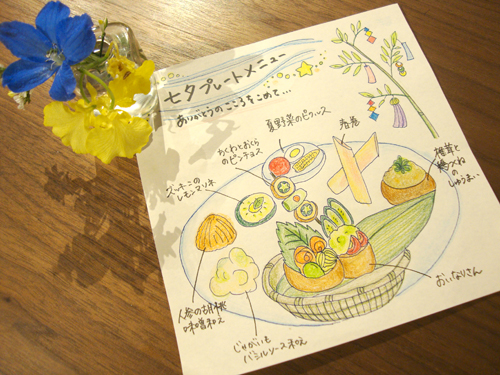 七夕プレートメニュー
ありがとうのこころをこめて…
夏野菜のピクルス
春巻
ちくわとおくら
のピンチョス
ズッキーニの
レモンマリネ
椎茸と
鶏つくねの
しゅうまい
おいなりさん
人参の胡桃
味噌和え
じゃがいも
バジルソース和え